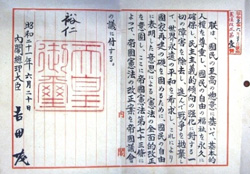 朕は、國民の至高の總意に基いて、基本的
人權を尊重し、國民の自由の福祉を永久に
確保し、民主主義的傾向の強化に對する一
切の障害を除去し、進んで戰爭を抛棄し
て、世界永遠の平和を希求し、これにより
國家再建の礎を固めるために、國民の自由
に表明した意思による憲法の全面的改正
を意圖し、ここに帝國憲法第七十三條に
よつて、帝國憲法の改正案を帝國議會
の議に付する。
裕仁
天皇
御璽
昭和二十一年六月二十日
内閣總理大臣
吉田茂
内閣